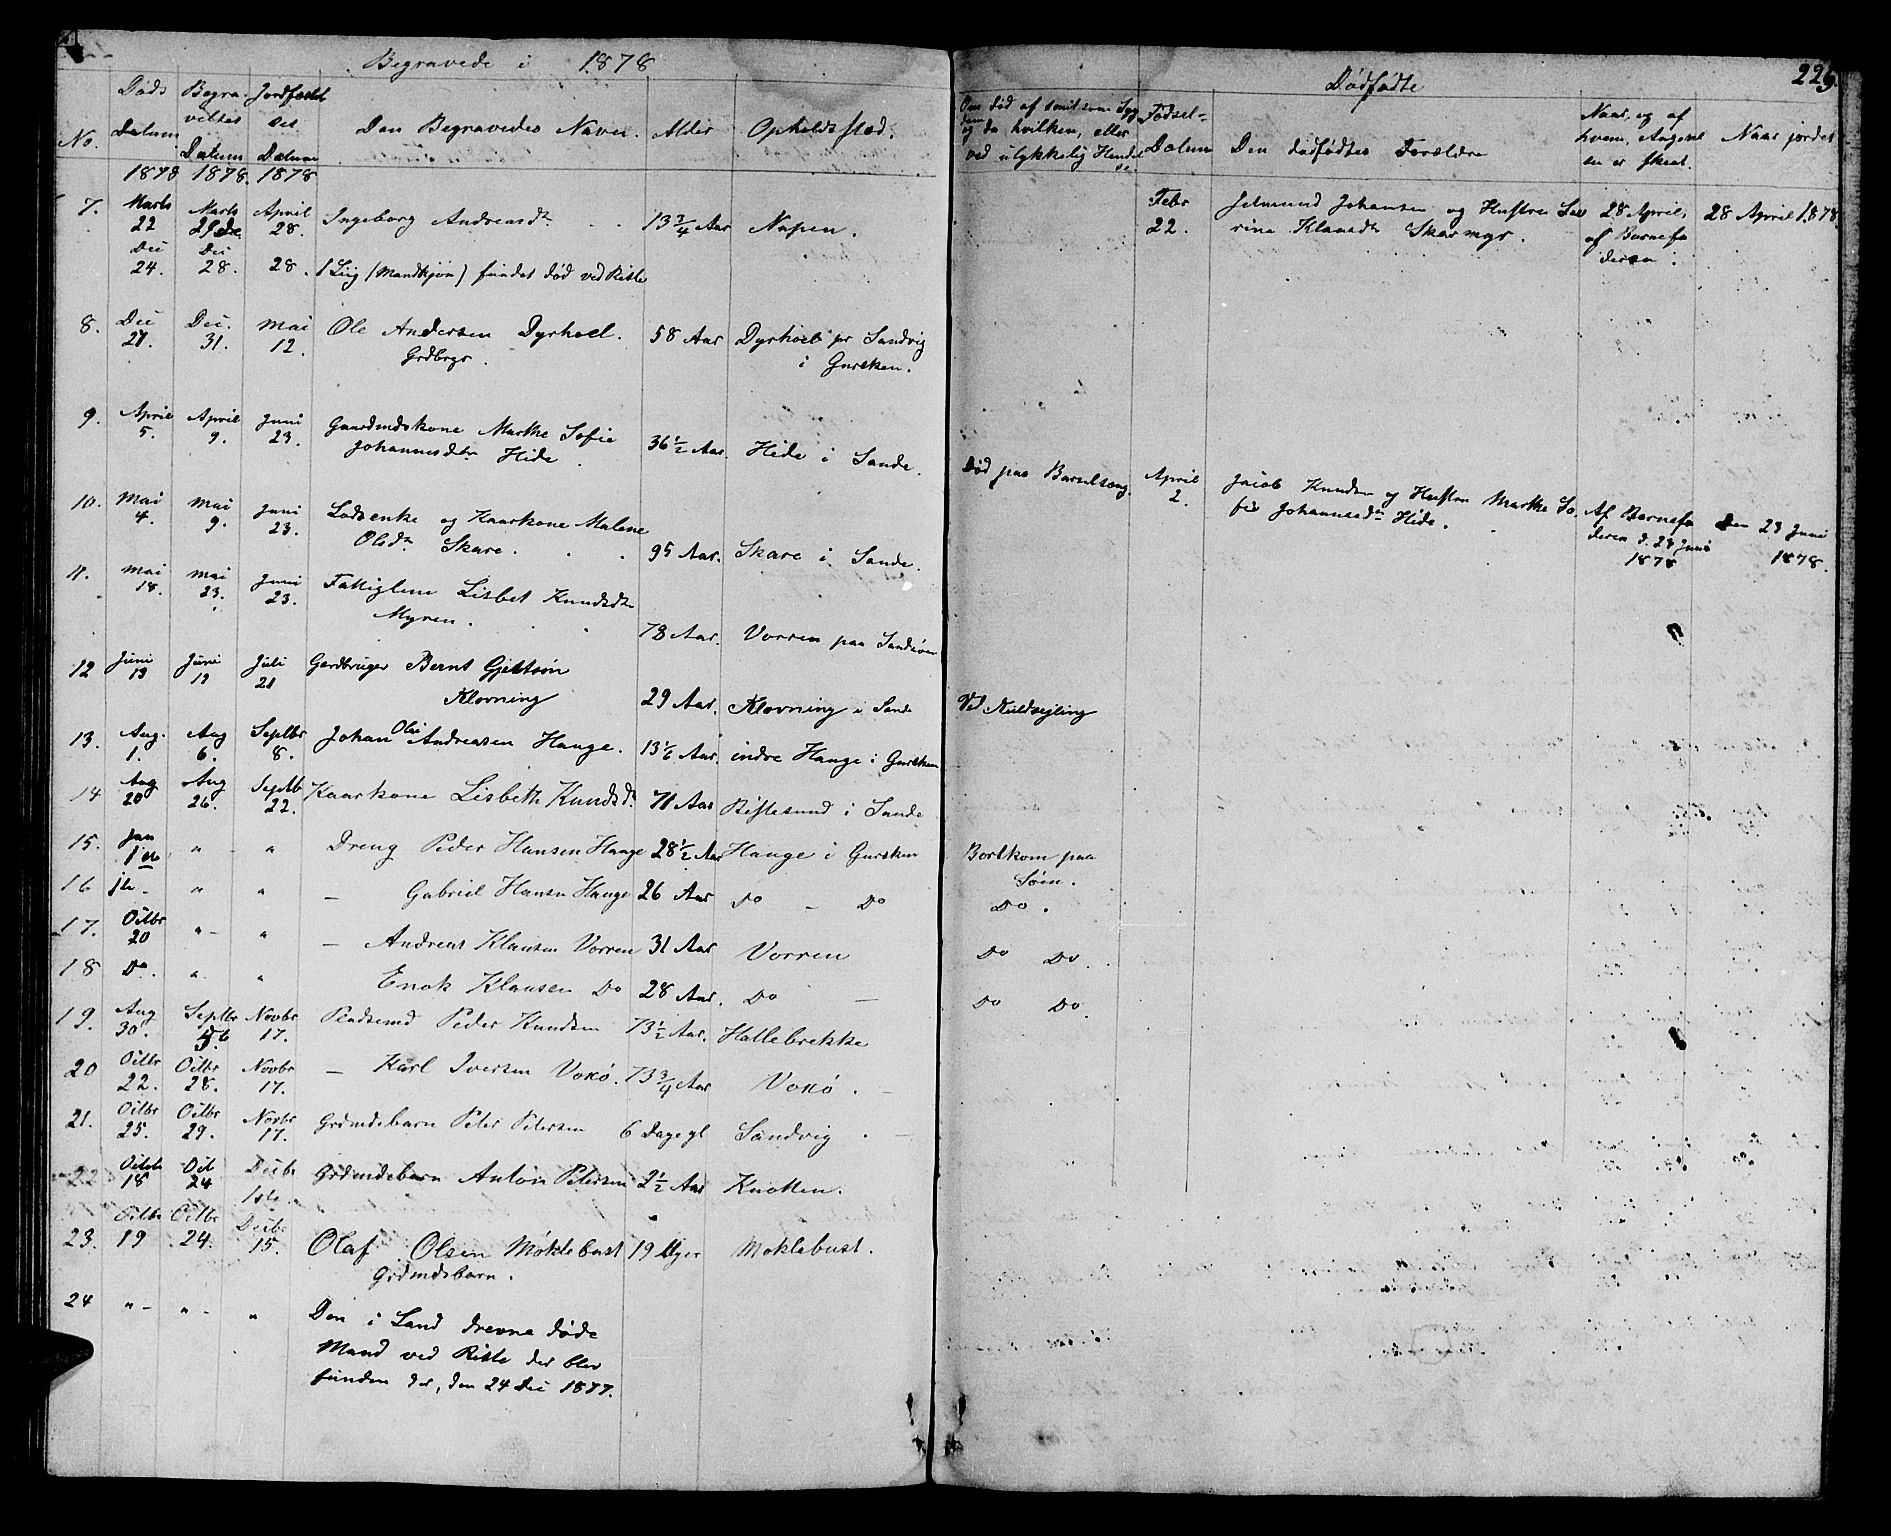 Begravede i 1878
Dødfødte
229.
No.
Døds Datum
Begravelses Datum
Jordfæstelses Datum
Den Begravedes Navn.
Alder
Opholdssted.
Om død af smitsom Sygdom
og da hvilken, eller
ved ulykkelig Hændelse.
Fødsels Datum
Den dødfødtes Forældre
Naar, og af
hvem, Angivelsen er skeet.
Naar jordet
1878 1878. 1878
7. Marts 22 Marts 29de April 28. Ingeborg Andreasdr 13 3/4 Aar Napen.
Febr 22. Johansen og Hustru
rine Klausdr Skarmyr.
28 April,
af Barnefaderen.
28 April 1878.
Dec 24. Dec 28. 28. 1 Liig (Mandkjøn) fundet død ved Riste
8. Dec 27. Dec. 31. Mai 12. Ole Andersen Dyrhoel.
Grdbrgr.
58 Aar Dyrhoel pr Sandvig
i Gursken.
9. April 5. April 9. Juni 23. Gaardmdskone Marthe Sofie
Johannesdr Hide.
36 1/2 Aar. Hide i Sande.
Død paa Barselseng.
April 2. Jacob Knudsen og Hustru Marthe So
fie Johannesdr Hide.
Af Barnefaderen d. 23 Juni
1878
Den 23 Juni
1878.
10. Mai 4. Mai 9. Juni 23. og Kaarkone Malene
Olsdr Skare.
95 Aar. Skare i Sande.
11. Mai 18. Mai 23. Juni 23. Fattiglem Lisbet Knudsdr
Myren.
78 Aar. Vorren paa Sandsøen
12 Juni 13 Juni 19 Juli 21 Gardbruger Bernt
Klovning
29 Aar. Klovning i Sande
Ved
13. Aug. 1. Aug 6. Septbr 8. Johan Olai Andreasen Hauge. 13 1/6 Aar. indre Hauge i Gursken
14 Aug 20 Aug 26. Septb 22. Kaarkone Lisbeth Knudsdr 71 Aar Ristesund i Sande
15. Jan 1ste " " Dreng Peder Hansen Hauge 28 1/2 Aar Hauge i Gursken
Bortkom paa
Søen.
16 1te - " " — Gabriel Hansen Hauge 26 Aar Do – Do
Do.
17. Octbr 20 " - " — Andreas Klausen Vorren 31 Aar Vorren
Do Do
18 Do. " " Enok Klausen Do 28 Aar. Do —
Do Do.
19. Aug 30. Septbr 5te Novbr 17. Pladsmd Peder Knudsen 73 1/2 Aar. Hallebrekke
20 Octbr 22. Octbr 28. Novbr 17. — Karl Iversen Voksø. 73 3/4 Aar Voksø.
21. Octbr 25. Octbr 29. Novbr 17. Grdmdebarn Peter Petersen 6 Dage gl Sandvig.
22 Octob 18 Oct 24 Decbr 1ste. Grdmdebarn Anton Petersen 2 1/2 Aar Knotten.
23. Octbr 19 Octbr 24. Decbr 15. Olaf Olsen Møklebust 19 Uger Moklebust.
Grdmdsbarn.
24 " – " – " Den i Land drevne døde
Mand ved Riste der blev
funden der, den 24 Dec 1877.